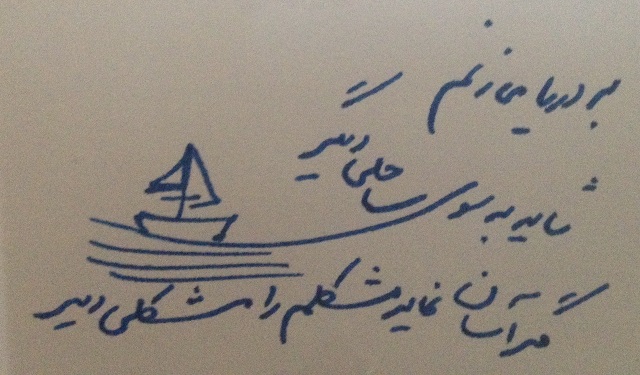 به دریا می زنم
شاید به سوی ساحلی دیگر
مگر آسان نماید مشکلم را مشکلی دیگر